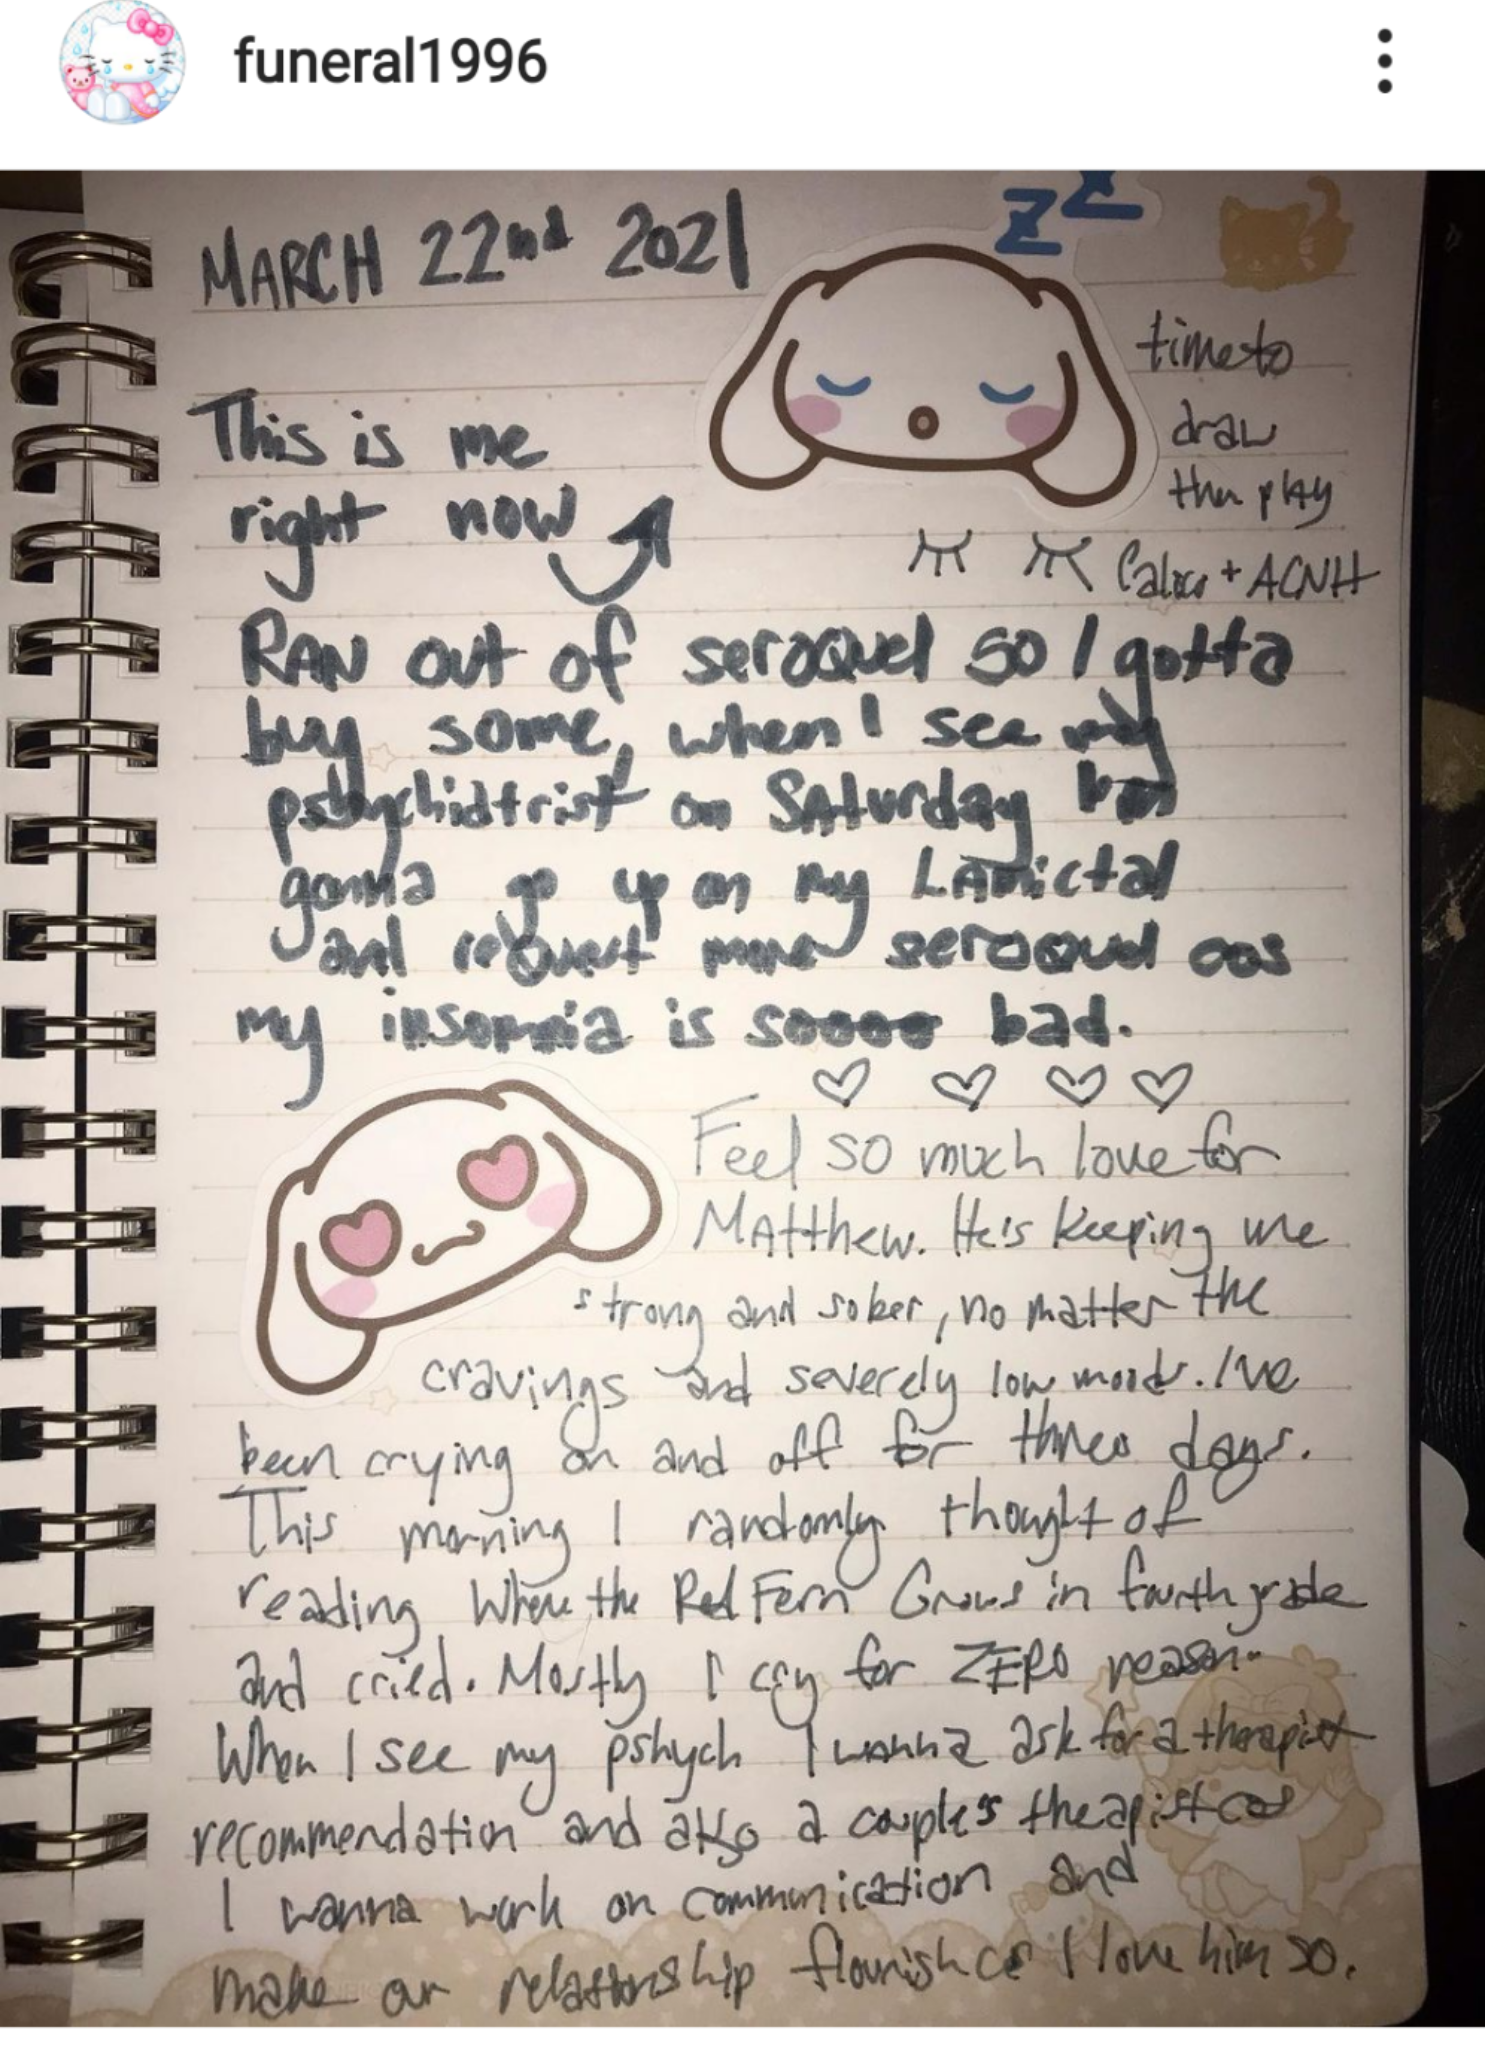 funeral1996
MARCH 22nd 2021
zz
time to
draw
then play
+ ACNH
This is me
right now
RAN out of seroquel so I gotta
buy some, when I see my
pshychiatrist on Saturday I'm
gonna go up on my LAMictal
and request more seroquel cos
my insomnia is soooo bad.
Feel so much love for
Matthew. He's keeping me
strong and sober, no matter the
cravings and severely low moods. I've
been crying on and off for three days.
This morning I randomly thought of
reading Where the Red Fern Grows in fourth grade
and cried. Mostly I cry for ZERO reason.
When I see my pshych I wanna ask for a therapist
recommendation and also a couples theapist cos
I wanna work on communication and
make our relationship flourish cos I love him so.